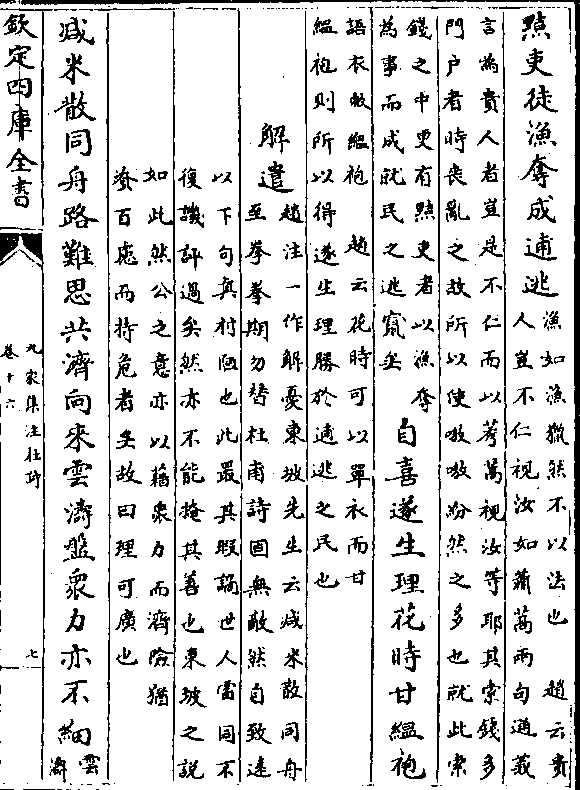 黠吏徒漁奪成逋逃
漁如漁獵然不以法也　趙云貴
人豈不仁視汝如蕭蒿兩句通義
言為貴人者豈是不仁而以莠蒿視汝等耶其索錢多
門户者時喪亂之故所以使嗷嗷紛然之多也就此索
錢之中更有黠吏者以漁奪
為事而成就民之逃竄矣
自喜遂生理花時甘緼袍
語衣敝緼袍　趙云花時可以單衣而甘
緼袍則所以得遂生理勝於逋逃之民也
解遣
趙注一作解憂東坡先生云减米散同舟
至拳拳期勿替杜甫詩固無敵然自致遠
以下句真村陋也此最其瑕謫世人雷同不
復譏評過矣然亦不能掩其善也東坡之説
如此然公之意亦以藉衆力而濟險猶
資百慮而持危者矣故曰理可廣也
减米散同舟路難思共濟向來雲濤盤衆力亦不細
雲
濤
欽定四庫全書
九家集注杜詩
卷十六
七